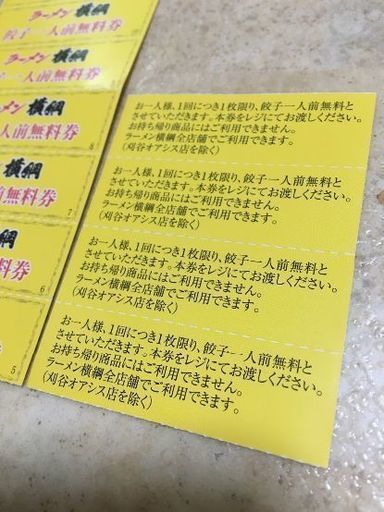 ラーメン 横綱
餃子一人前無料券
ラーメン 横綱
餃子一人前無料券
8
ーメン 横綱
人前無料券
7
横綱
前無料券
6
綱
無料券
5
お一人様、1回につき1枚限り、餃子一人前無料と
させていただきます。本券をレジにてお渡しください。
お持ち帰り商品にはご利用できません。
ラーメン横綱全店舗でご利用できます。
(刈谷オアシス店を除く)
お一人様、1回につき1枚限り、餃子一人前無料と
させていただきます。本券をレジにてお渡しください。
お持ち帰り商品にはご利用できません。
ラーメン横綱全店舗でご利用できます。
(刈谷オアシス店を除く)
お一人様、1回につき1枚限り、餃子一人前無料と
させていただきます。本券をレジにてお渡しください。
お持ち帰り商品にはご利用できません。
ラーメン横綱全店舗でご利用できます。
(刈谷オアシス店を除く)
お一人様、1回につき1枚限り、餃子一人前無料と
させていただきます。本券をレジにてお渡しください。
お持ち帰り商品にはご利用できません。
ラーメン横綱全店舗でご利用できます。
(刈谷オアシス店を除く)